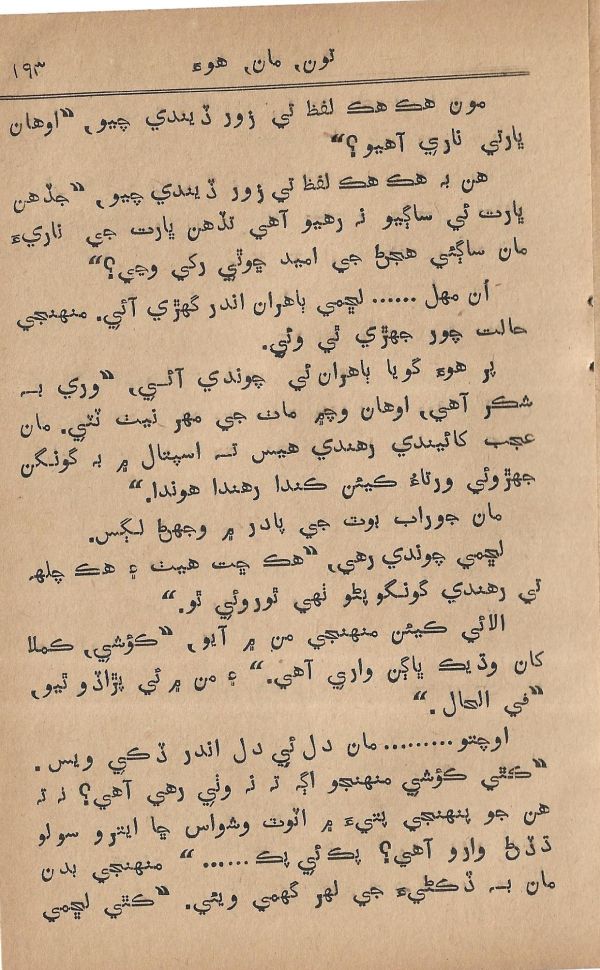 تون, مان, هوءَ ۱۹۳
مون هڪ هڪ لفظ تي زور ڏيندي چيو, ”اوهان
ڀارتي ناري آهيو؟“
هن بہ هڪ هڪ لفظ تي زور ڏيندي چيو, ”جڏهن
ڀارت ئي ساڳيو نہ رهيو آهي تڏهن ڀارت جي ناريءَ
مان ساڳئي هجڻ جي اميد ڇوٿي رکي وڃي؟“
اُن مهل ...... لڇمي ٻاهران اندر گهڙي آئي. منهنجي
حالت چور جهڙي ٿي وئي.
پر هوءَ گويا ٻاهران ئي چوندي آئي, ”وري بہ
شڪر آهي, اوهان وچ ۾ مات جي مهر نيٺ ٽٽي. مان
عجب کائيندي رهندي هيس تہ اسپتال ۾ بہ گونگن
جهڙوئي ورتاءُ ڪيئن ڪندا رهندا هوندا.“
مان جوراب بوٽ جي پادر ۾ وجهڻ لڳس.
لڇمي چوندي رهي, ”هڪ ڇت هيٺ ۽ هڪ چلهہ
تي رهندي گونگو پڻو ٺهي ٿوروئي ٿو.“
الائي ڪيئن منهنجي من ۾ آيو, ”ڪؤشي, ڪملا
کان وڌيڪ ڀاڳن واري آهي.“ ۽ من ۾ ئي پڙاڏو ٿيو,
”في الحال.“
اوچتو ......... مان دل ئي دل اندر ڏڪي ويس.
”ڪٿي ڪؤشي منهنجو اڳہ تہ نہ وٺي رهي آهي؟ نہ تہ
هن جو پنهنجي پتيءَ ۾ اٽوٽ وشواس ڇا ايترو سولو
ڌڏڻ وارو آهي؟ پڪ ئي پڪ ......“ منهنجي بدن
مان بہ ڏڪڻيءَ جي لهر گهمي ويئي. ”ڪٿي لڇمي